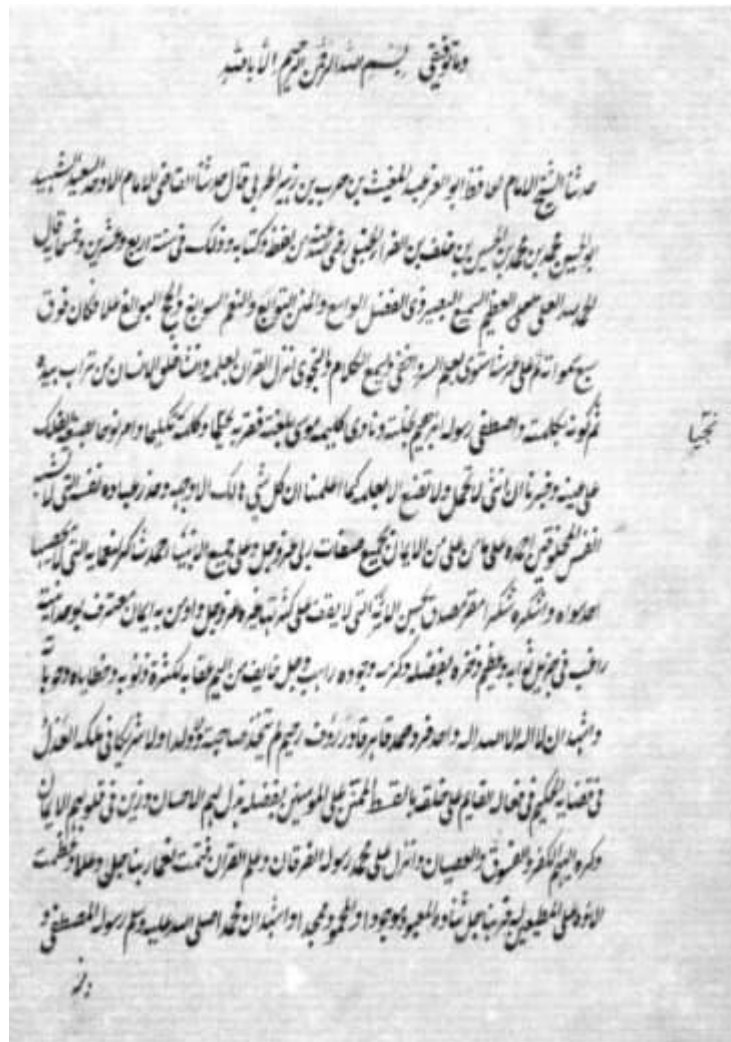 وما توفيقي بسم الله الرحمن الرحيم الا بالله
حدثنا الشيخ الامام الحافظ ابو العز عبد المغيث بن حرب بن زهير الحربي قال حدثنا القاضي الامام الاوحد السعيد الشهيد
ابو الحسين محمد بن محمد بن الحسين بن خلف بن الفرا الحنبلي رضي الله عنه من لفظه وكتابه وذلك في سنة اربع وعشرين وخمسمائة قال
الحمد لله العلي العظيم السميع البصير ذي الفضل الواسع والمنن التوابع والنعم السوابغ والحجج البوالغ علا فكان فوق
سبع سمواته ثم على عرشه استوى يعلم السر واخفى ويسمع الكلام والنجوى انزل القران بعلمه وانشا خلق الانسان من تراب بيده
ثم كونه بكلمته واصطفى رسوله ابرهيم بخلته ونادى كليمه موسى فقربه نجيا وكلمه تكليما وامر نوحا بصنعة الفلك
نجيا
على عينه وخبرنا ان انثى لا تحمل ولا تضع الا بعلمه كما اعلمنا ان كل شي هالك الا وجهه وحذر عباده نفسه التي لا تشبه
انفس المخلوقين احمده على ما من على من الايمان بجميع صفات ربي عز وجل وعلى جميع الانبيا احمد شاكر نعمايه التي لا يحصيها
احد سواه واشكره شكر مقر مصدق بحسن الائه التي لا يقف على كثرتها غيره عز وجل واومن به ايمان معترف بوحدانيته
راغب في جزيل ثوابه وعظيم ذخره بفضله وكرمه وجوده راهب وجل خايف من اليم عقابه لكثرة ذنوبه وخطاياه وحوباته
واشهد ان لا اله الا الله اله واحد فرد صمد قاهر قادر رؤف رحيم لم يتخذ صاحبة ولا ولدا ولا شريكا في ملكه العدل
في قضايه الحكيم في فعاله القايم على خلقه بالقسط الممتن على المومنين بفضله بذل لهم الاحسان وزين في قلوبهم الايمان
وكره اليهم الكفر والفسوق والعصيان وانزل على محمد رسوله الفرقان وعلم القران فتمت نعما ربنا جل وعلا وعظمت
الاؤه على المطيعين له فربنا جل ثناؤه المعبود موجودا والمحمود ممجدا واشهد ان محمدا صلى الله عليه وسلم رسوله المصطفى و